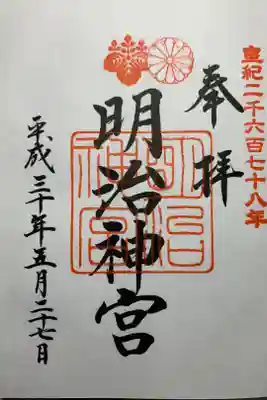 皇紀二千六百七十八年
奉拝
明治神宮
明治神宮
平成三十年五月二十七日